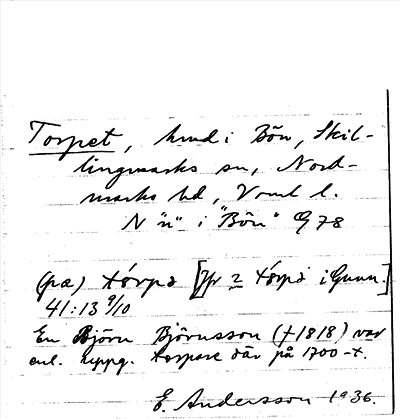 Torpet, hmd i Bön, Skil-
lingmarks sn, Nord-
marks hd, Vrml l.
N "n" i "Bön" G 78
(pæ) tórpə [Jfr 2 tórpə i Gunn.]
41:13 9/10
En Björn Björnsson (†1818) var
enl. uppg. torpare där på 1700-t.
E. Andersson 1936.